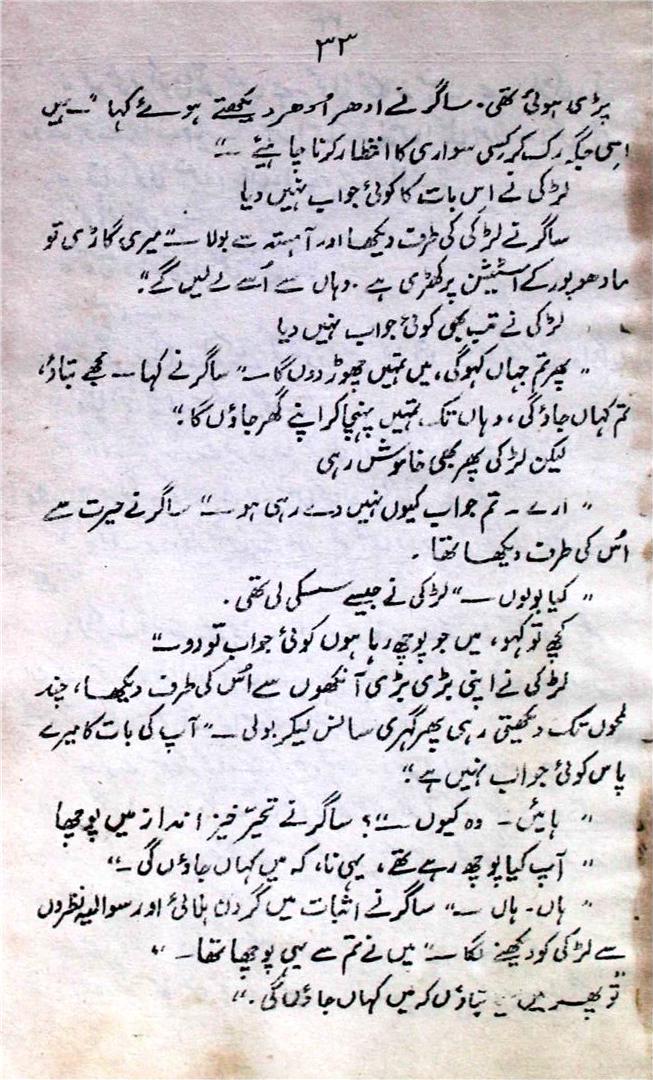 ۳۳
پڑی ہوئی تھی۔ ساگر نے ادھر اُدھر دیکھتے ہوئے کہا ”— ہمیں
اسی جگہ رک کر کسی سواری کا انتظار کرنا چاہئیے —“
لڑکی نے اس بات کا کوئی جواب نہیں دیا
ساگر نے لڑکی کی طرف دیکھا اور آہستہ سے بولا —”میری گاڑی تو
مادھوپور کے اسٹیشن پر کھڑی ہے۔ وہاں سے اُسے لے لیں گے“۔
لڑکی نے تب بھی کوئی جواب نہیں دیا
”پھر تم جہاں کہوگی، میں تمہیں چھوڑ دوں گا —“ ساگر نے کہا — مجھے بتاؤ،
تم کہاں جاؤ گی، وہاں تک تمہیں پہنچا کر اپنے گھر جاؤں گا“۔
لیکن لڑکی پھر بھی خاموش رہی
”ارے — تم جواب کیوں نہیں دے رہی ہو —“ ساگر نے حیرت سے
اُس کی طرف دیکھا تھا۔
”کیا بولوں —“ لڑکی نے جیسے سسکی لی تھی۔
کچھ تو کہو، میں جو پوچھ رہا ہوں کوئی جواب تو دو —“
لڑکی نے اپنی بڑی بڑی آنکھوں سے اُس کی طرف دیکھا، چند
لمحوں تک دیکھتی رہی پھر گہری سانس لیکر بولی —”آپ کی بات کا میرے
پاس کوئی جواب نہیں ہے“۔
”ہائیں — وہ کیوں —“؟ ساگر نے تحیّر خیز انداز میں پوچھا
”آپ کیا پوچھ رہے تھے، یہی نا، کہ میں کہاں جاؤں گی —“
”ہاں۔ ہاں —“ ساگر نے اثبات میں گردن ہلائی اور سوالیہ نظروں
سے لڑکی کو دیکھنے لگا —”میں نے تم سے یہی پوچھا تھا —“
”تو پھر میں بتاؤں کہ میں کہاں جاؤں گی۔“